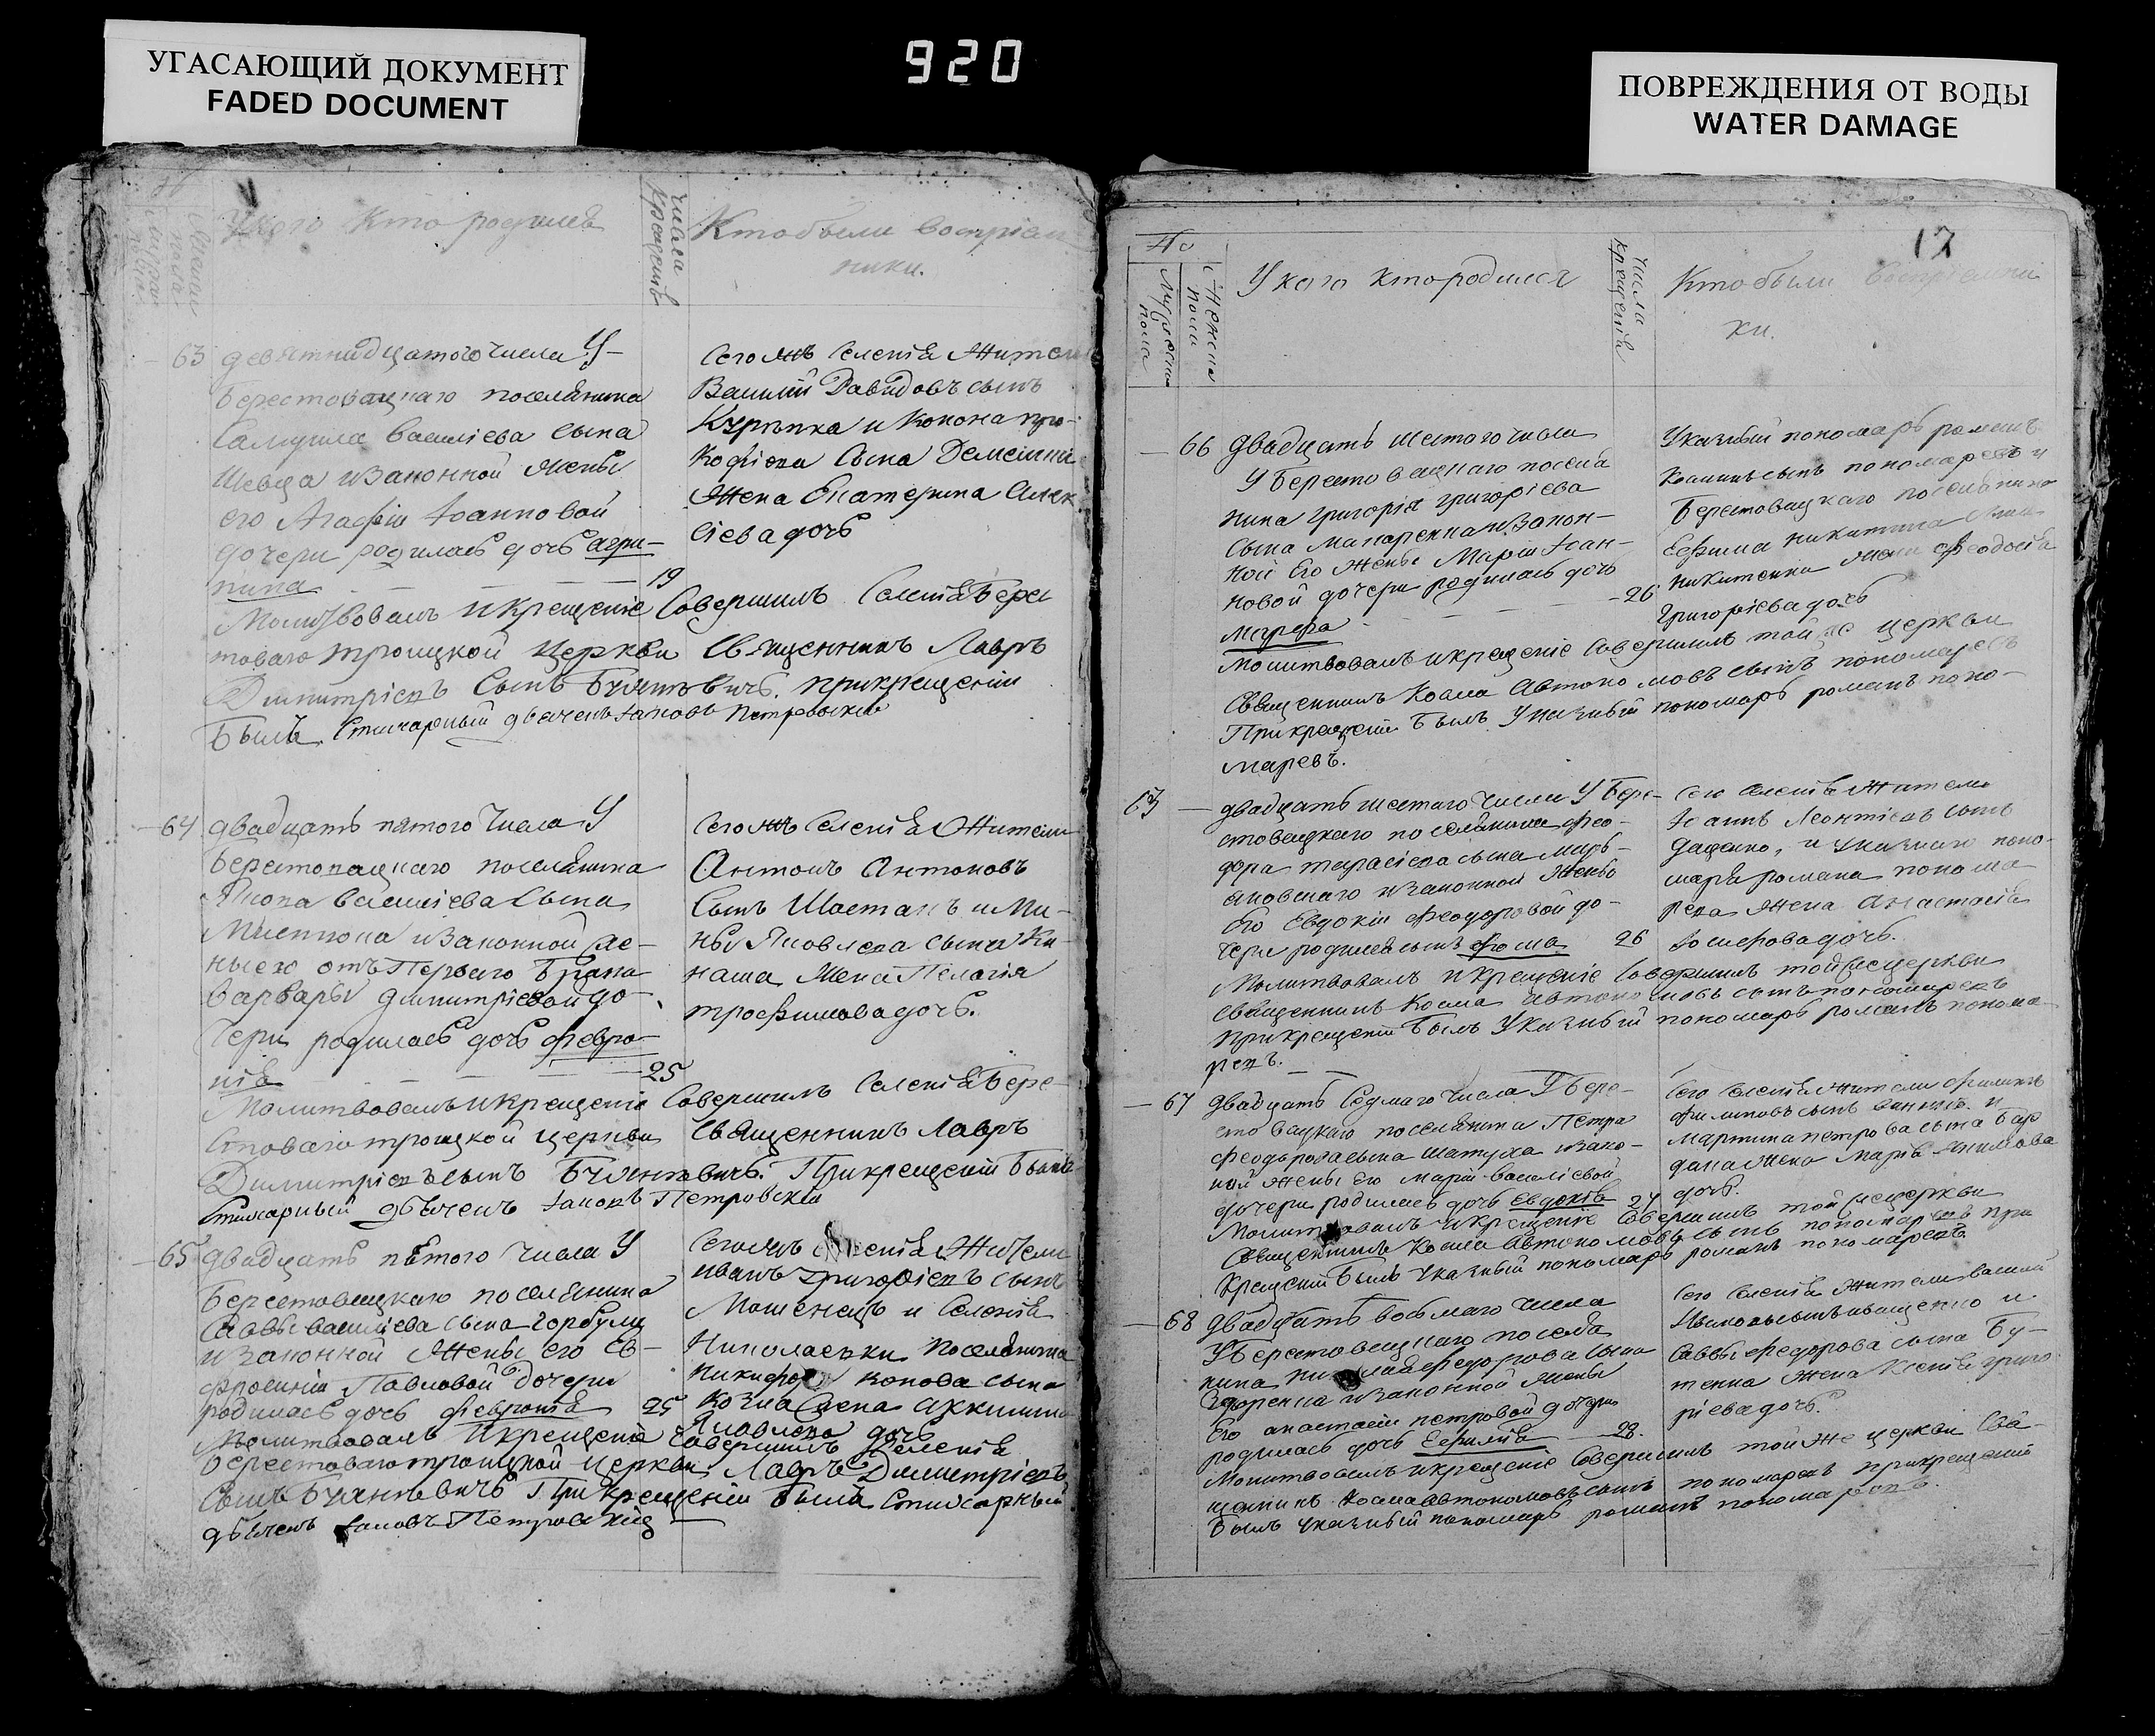 УГАСАЮЩИЙ ДОКУМЕНТ
FADED DOCUMENT
920
ПОВРЕЖДЕНИЯ ОТ ВОДЫ
WATER DAMAGE
У кого кто родился
числа крещенія
Кто были воспріем
ники.
63 девятнадцатого числа У
Берестовацкаго поселянина
Самуила Василіева сына
Шевца изаконной жены
его Агафіи Іоанновой
дочери родилась дочь Агри-
пина 19
Молитвовалъ и крещеніе Совершилъ Селенія Берес
товаго троицкой церкви Священникъ Лавръ
Димитріевъ Сынъ прикрещеніи
Былъ Стихарный дьячекъ Іаковъ Петровскій
Сегожъ Селенія Жители
Василий Давидовъ сынъ
и Конона про-
кофіева Сына
Жена Екатерина Алек
сіева дочь
64 двадцать пятого Числа У
Берестовацкаго поселянина
Якова Василіева Сына
изаконной же-
ны его отъ Перваго Брака
Варвары димитріевой до-
чери родилась дочь Февро-
нія 25
Молитвовалъ и крещеніе Совершилъ Селенія Бере-
стоваго троицкой церкви Священникъ Лавръ
Димитріевъ сынъ Прикрещеніи Былъ
Стихарный дьячекъ Іаковъ Петровскій
Сегожъ Селенія Жители
Антонъ Антоновъ
Сынъ Шастанъ и Ми-
ны Яковлева сына Ки-
наша Жена Пелагія
трофимова дочь.
65 двадцать пятого Числа У
Берестовацкаго поселянина
Саввы василіева сына Горбули
изаконной Жены его Ев-
фросиніи Павловой Дочери
родилась дочь Февронія 25
Молитвовалъ и крещеніе Совершилъ Селенія
Берестоваго троицкой церкви Лавръ Димитріевъ
Сынъ При крещеніи былъ Стихарный
дьячекъ Іаковъ Петровскій
Сегожъ Селенія Жители
иванъ григоріевъ сынъ
Мошенецъ и Селенія
Николаевки поселянина
Никифора конова сына
Яковлева дочь
17
No
Мужеска пола
Женска пола
У кого кто родился
числа крещенія
Кто были воспріемни
ки.
66 двадцать шестого числа
У Берестовацкаго поселя
нина григорія григоріева
Сына Макаренка изакон-
ной Его Жены Маріи Іоан-
новой дочери родилась дочь
Марфа 26
Молитвовалъ и крещеніе Совершилъ той же церкви
Священникъ Косма Автономовъ сынъ пономаревъ
При крещеніи Былъ Указный пономарь романъ поно-
маревъ.
Указный пономарь романъ
Косминъ сынъ пономаревъ и
Берестовацкаго поселянина
Ефима никитина сына
никитенки жена Феодосія
григоріева дочь
63 двадцать шестаго числа У Бере-
стовацкаго поселянина Фео-
дора тарасіева сына Марь-
яновскаго изаконной Жены
Его Евдокіи Феодоровой до-
чери родился сынъ Фома 26
Молитвовалъ и крещеніе Совершилъ той же церкви
священникъ Косма Автономовъ сынъ пономаревъ
При крещеніи Былъ Указный пономарь романъ понома-
ревъ.
Сего Селенія Жители
Іоаннъ Леонтіевъ сынъ
Даценко, и указнаго поно-
маря романа понома
рева Жена Анастасія
Іосифова дочь.
67 двадцать Седмаго Числа У Бере-
стовацкаго поселянина Петра
феодорова сына Шатуха изако-
ной Жены Его Маріи Василіевой
дочери родилась дочь Евдокія 27
Молитвовалъ и крещеніе Совершилъ той же церкви
Священникъ Косма Автономовъ сынъ пономаревъ при
Крещеніи Былъ Указный пономарь романъ пономаревъ.
Сего Селенія Жители Филипъ
Филиповъ сынъ и
Мартина петрова сына
Жена Марія Якимова
дочь.
68 двадцать восьмаго числа
У Берестовацкаго поселя
нина николая Федорова сына
изаконной Жены
Его анастасіи петровой дочери
родилась дочь Евфимія 28.
Молитвовалъ и крещеніе Совершилъ той же церкви Свя-
щенникъ Косма Автономовъ сынъ пономаревъ прикрещеніи
Былъ указный пономарь романъ пономаревъ.
Сего Селенія Жители василий
иващенко и
Саввы Федорова сына Бу-
тенка Жена Ксенія григо
ріева дочь.